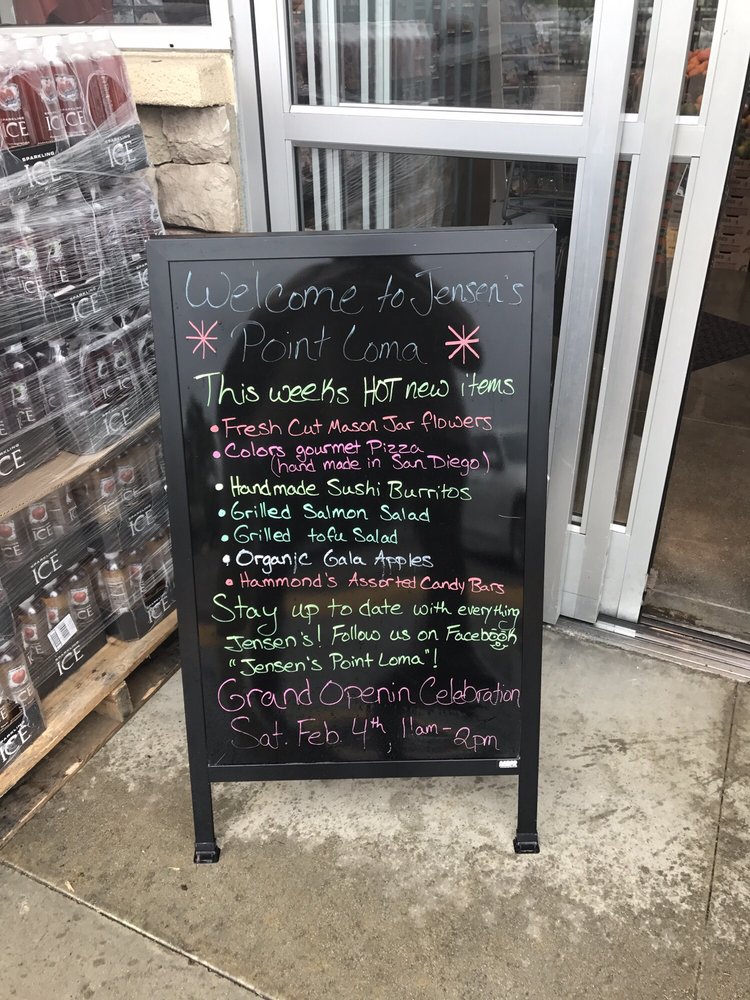 Welcome to Jensen's
Point Loma
This weeks HOT new items
• Fresh Cut Mason Jar flowers
• Colors gourmet Pizza
(hand made in San Diego)
• Handmade Sushi Burritos
• Grilled Salmon Salad
• Grilled tofu Salad
• Organic Gala Apples
• Hammond's Assorted Candy Bars
Stay up to date with everything
Jensen's! Follow us on Facebook
"Jensen's Point Loma"!
Grand Openin Celebration
Sat. Feb 4th, 11am-2pm
ICE
ICE
SPARKLING
ICE
SPARKLING
ICE
ICE
ICE
ICE
ICE
ICE
SPARKLING
ICE
ICE
ICE
ICE